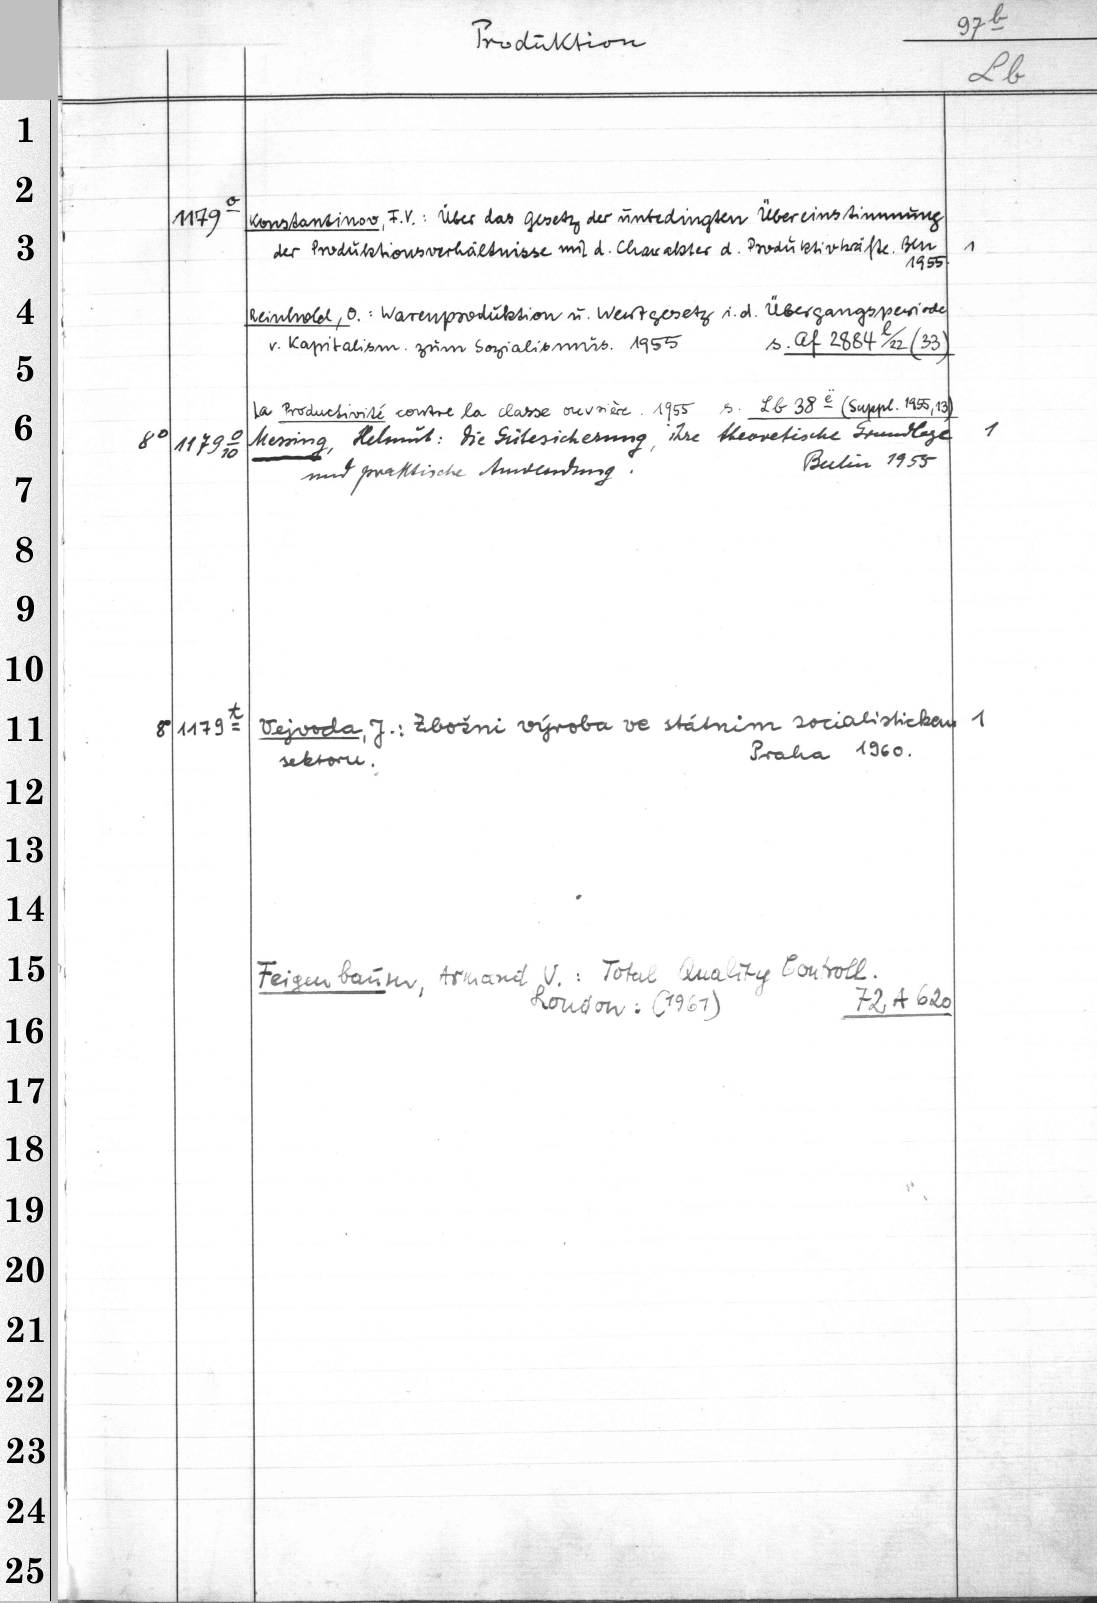 Produktion
97 b
Lb
1
2
1179 o Konstantinov, F.V.: Über das Gesetz der unbedingten Übereinstimmung
3
der Produktionsverhältnisse mit d. Charakter d. Produktivkräfte. Bln 1
1955.
4
Reinhold, O.: Warenproduktion u. Wertgesetz i.d. Übergangsperiode
v. Kapitalism. zum Sozialismus. 1955 s. Af 2884 l/22 (33)
5
La Productivité contre la classe ouvrière. 1955 s. Lb 38 ë (Suppl. 1955,13)
6
8° 1179 o/10 Messing, Helmut: Die Gütesicherung, ihre theoretische Grundlage 1
und praktische Anwendung. Berlin 1955
7
8
9
10
11
8° 1179 t Vejvoda, J.: Zbožni výroba ve státnim socialistickem 1
sektoru. Praha 1960.
12
13
14
15
Feigenbaum, Armand V.: Total Quality Controll.
London: (1961) 72 A 620
16
17
18
19
20
21
22
23
24
25